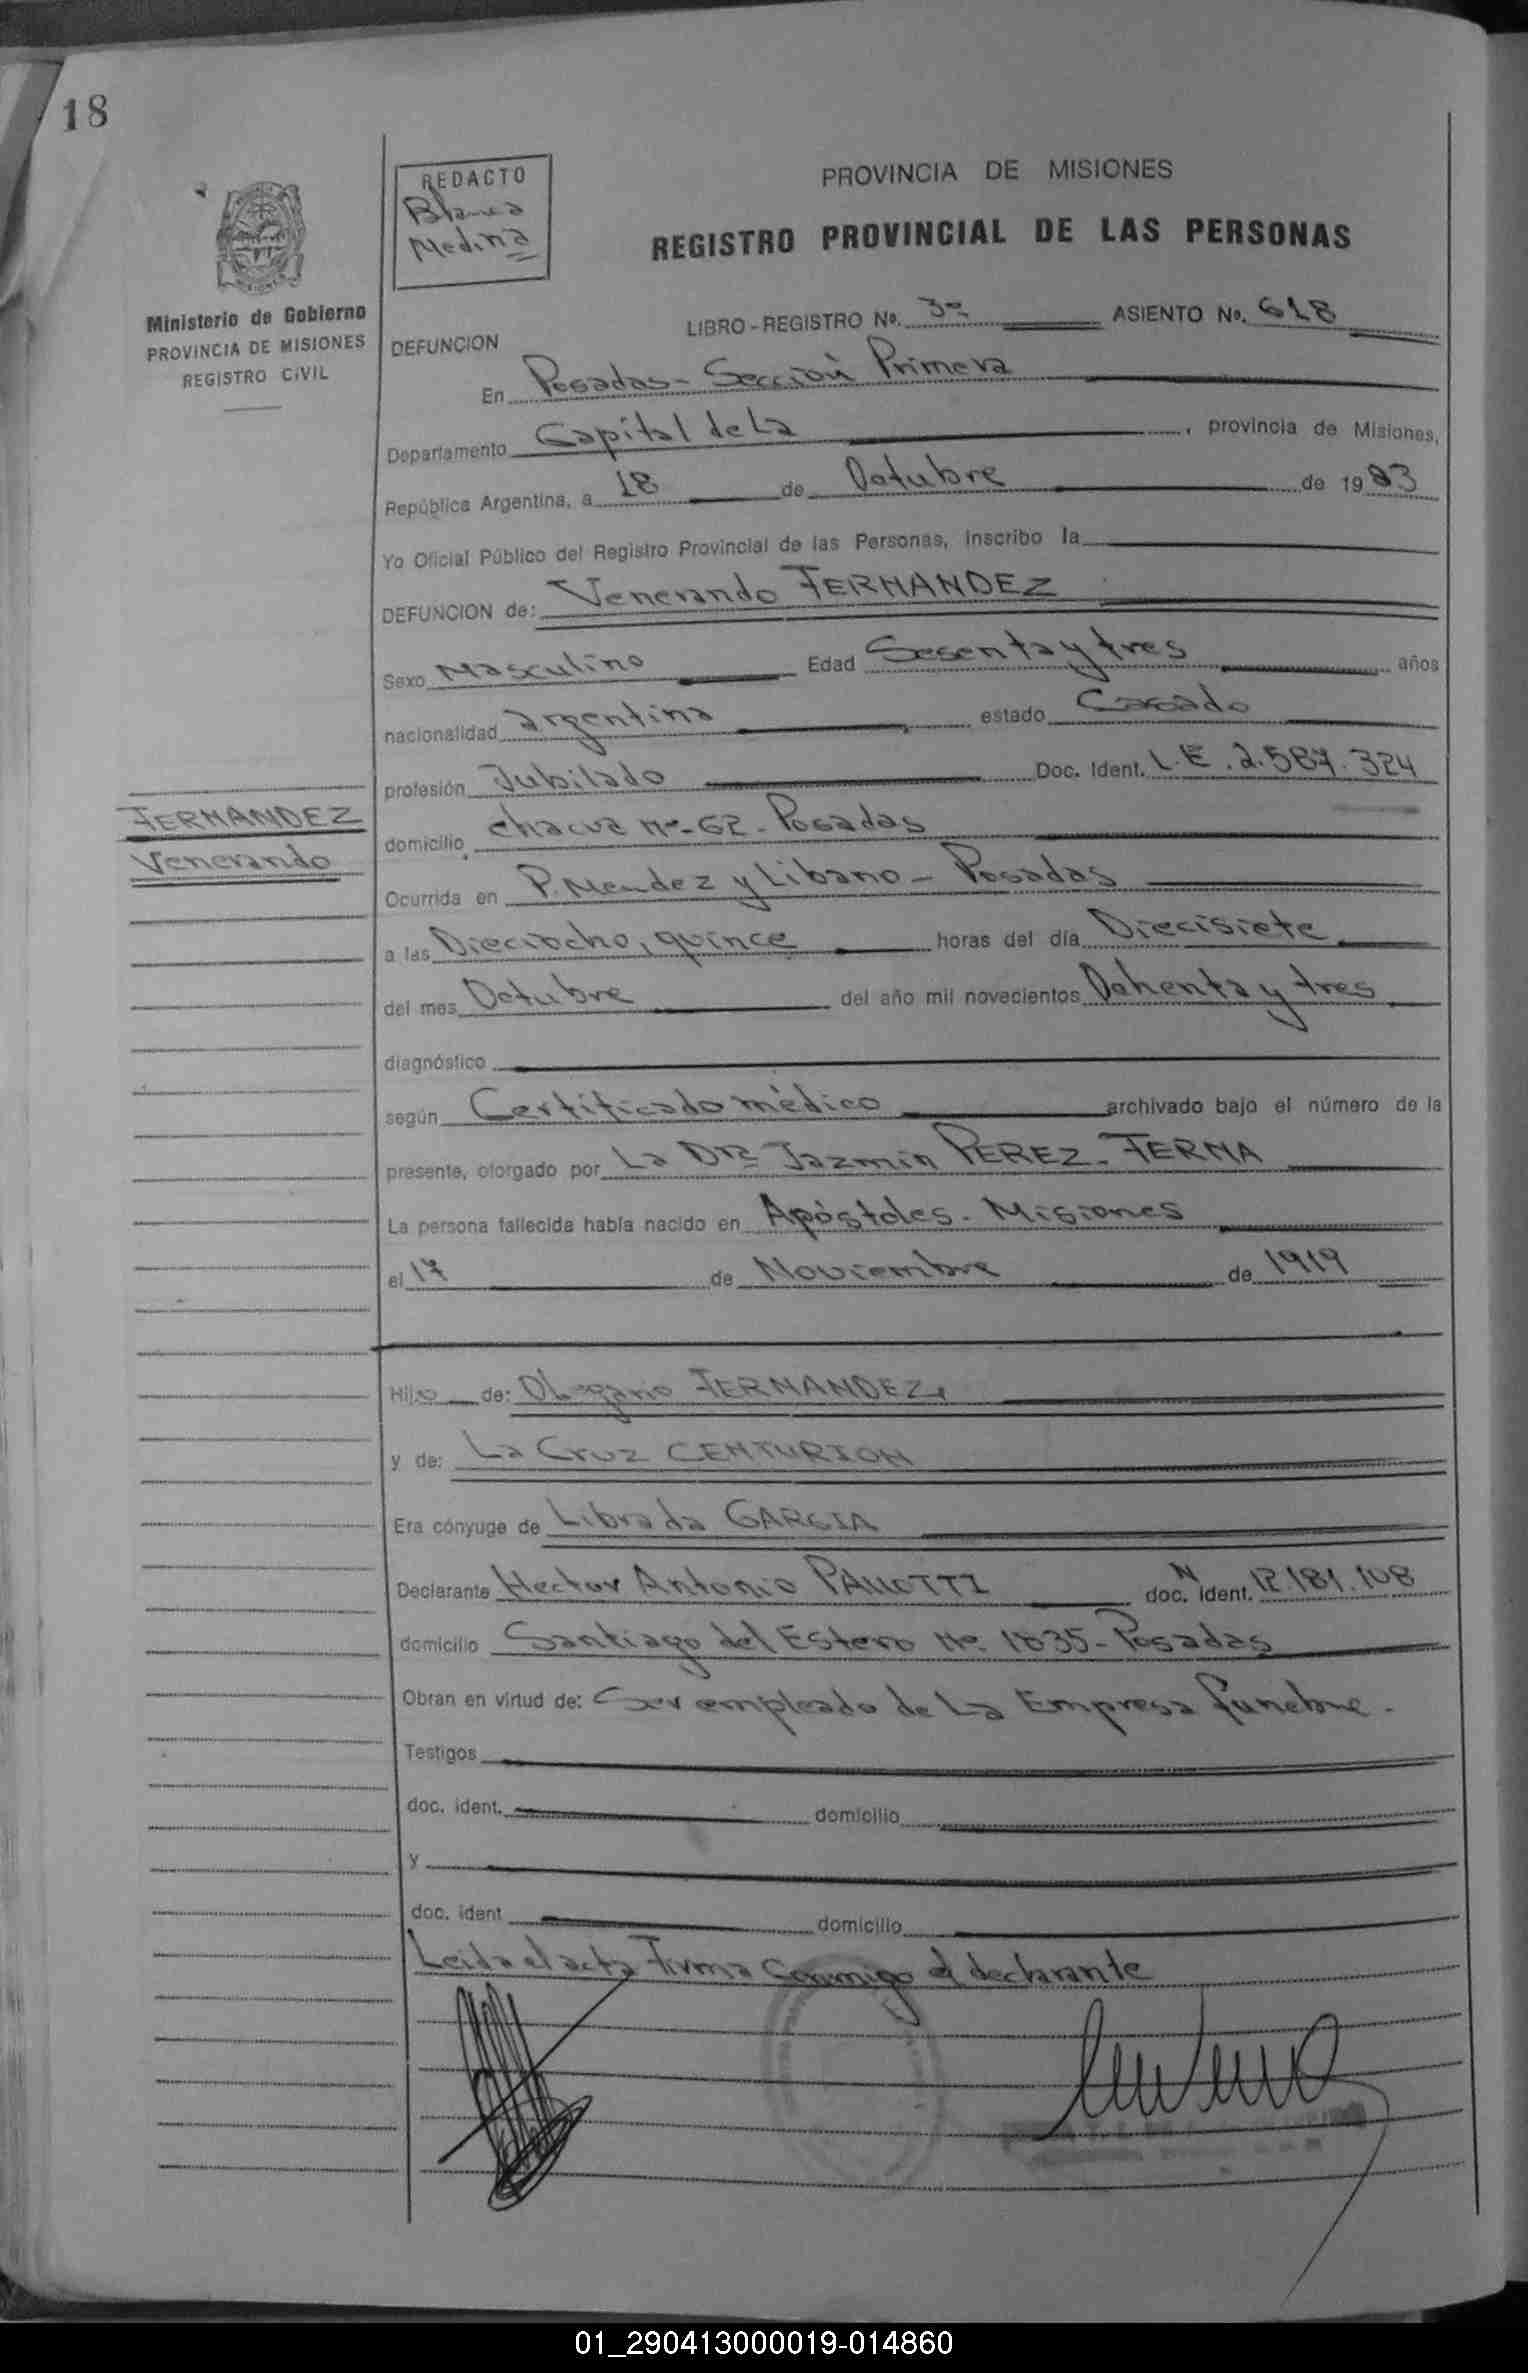 18
REDACTO
Blanca
Medina
PROVINCIA DE MISIONES
REGISTRO PROVINCIAL DE LAS PERSONAS
Ministerio de Gobierno
PROVINCIA DE MISIONES
REGISTRO CIVIL
LIBRO-REGISTRO No. 3º ASIENTO No. 618
DEFUNCION
En Posadas - Sección Primera
Departamento Capital de La, provincia de Misiones,
República Argentina, a 18 de Octubre de 1983
Yo Oficial Público del Registro Provincial de las Personas, inscribo la
DEFUNCION de: Venerando FERNANDEZ
Sexo Masculino Edad Sesenta y tres años
nacionalidad argentina estado Casado
profesión Jubilado Doc. Ident. L.E. 2.587.324
FERNANDEZ
Venerando
domicilio chacra Nº-62- Posadas
Ocurrida en P. Mendez y Libano - Posadas
a las Dieciocho, quince horas del día Diecisiete
del mes Octubre del año mil novecientos Ochenta y tres
diagnóstico
según Certificado médico archivado bajo el número de la
presente, otorgado por La Dra Jazmin PEREZ - FERNA
La persona fallecida había nacido en Apóstoles - Misiones
el 17 de Noviembre de 1919
Hijo de: Olegario FERNANDEZ
y de: La Cruz CENTURION
Era cónyuge de Librada GARCIA
Declarante Hector Antonio doc. N ident. 12.181.108
domicilio Santiago del Estero Nº 1835- Posadas
Obran en virtud de: Ser empleado de La Empresa funebre.
Testigos
doc. ident. domicilio
y
doc. ident domicilio
Leida el acta Firma Conmigo el declarante
01_290413000019-014860